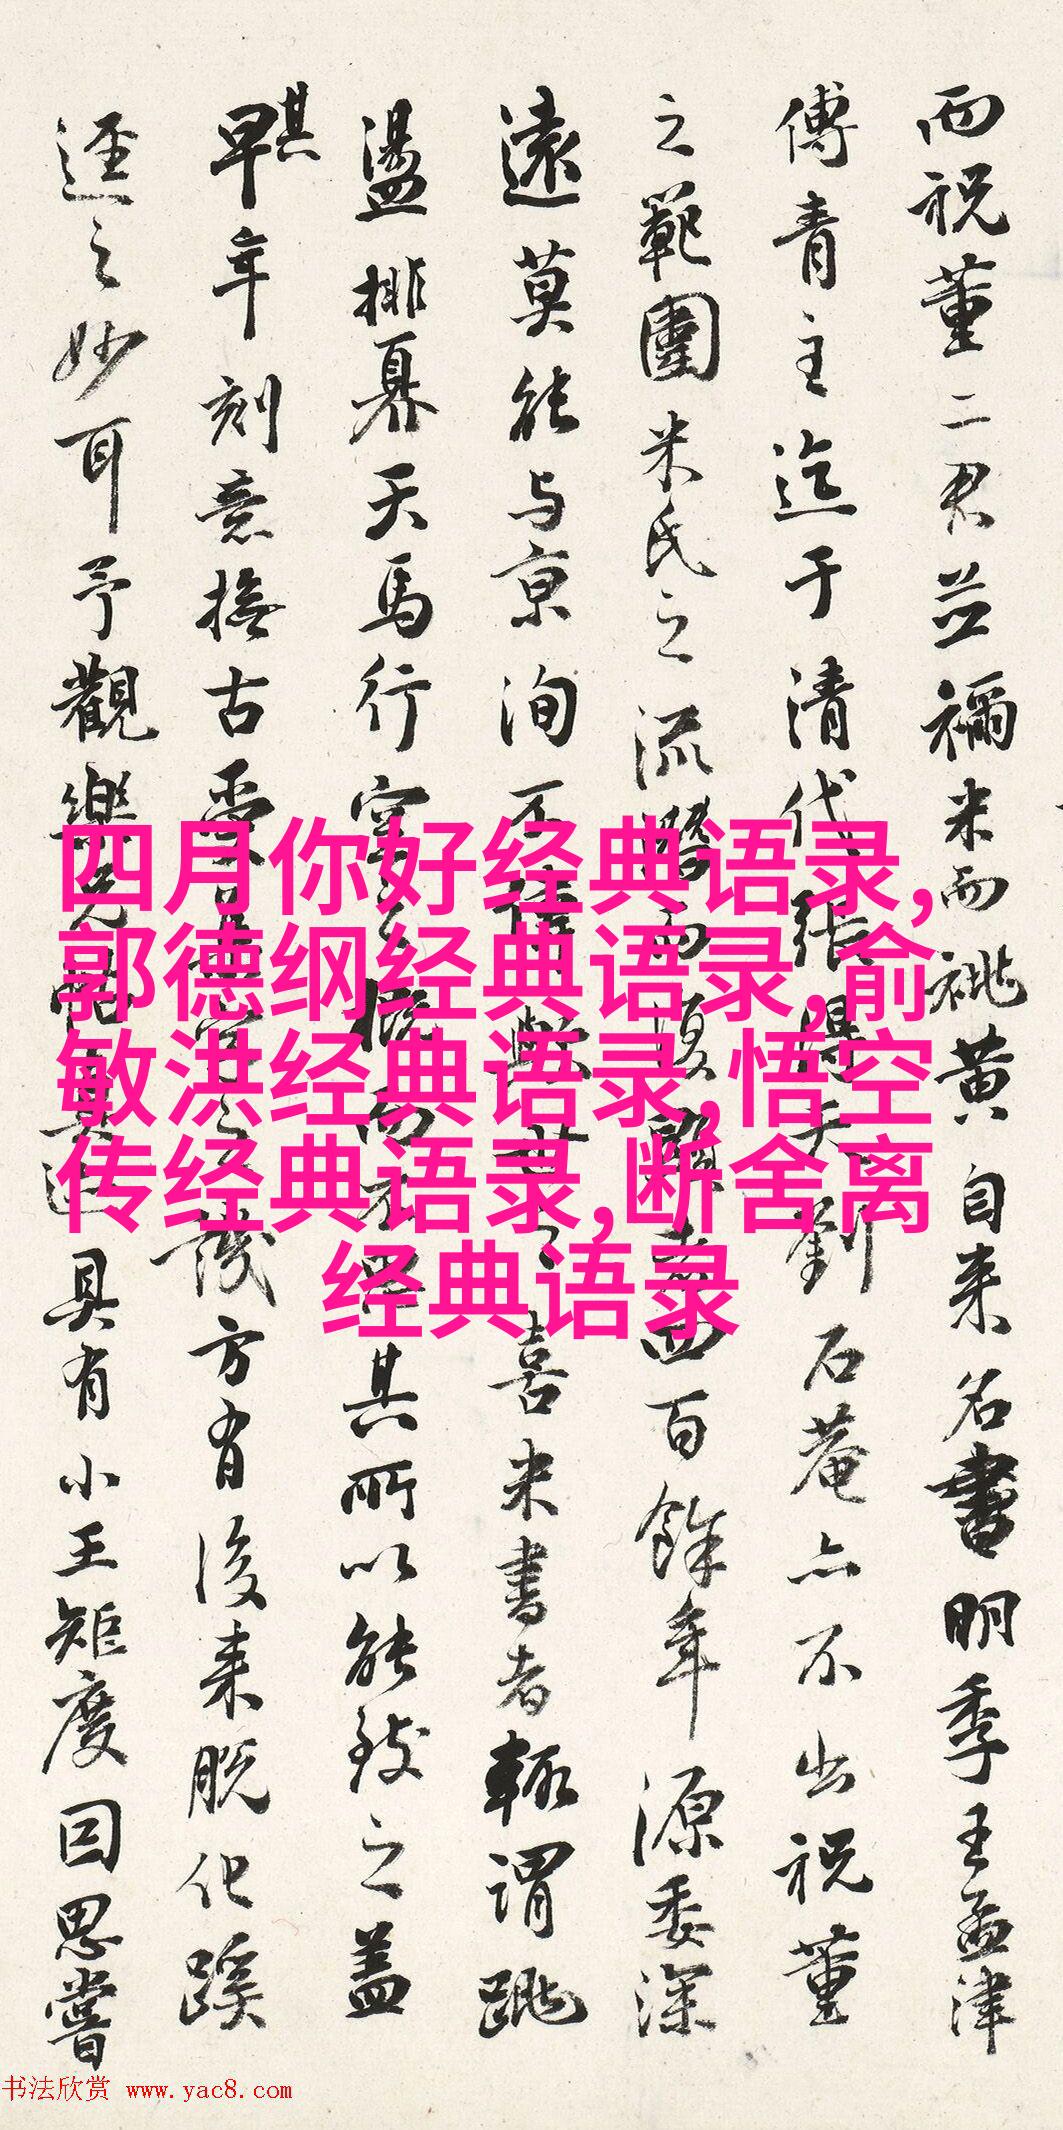 而祝董二君并祢米而祧黄自来名書明季王孟津
傅青主迄于清代張得天劉石菴亦不出祝董
之範圍米氏之流潛而復顯者四百餘年源委深
遠莫能与京洵不
喜米書者輒謂跳
盪排奡天馬行空
其所以能致之蓋
早年刻意撫古
識方有後来脱化蹊
其
逕之妙耳予觀樂
具有小王矩度因思嘗
四月你好经典语录,
郭德纲经典语录,俞
敏洪经典语录,悟空
传经典语录,断舍离
经典语录
书法欣赏 www.yac8.com